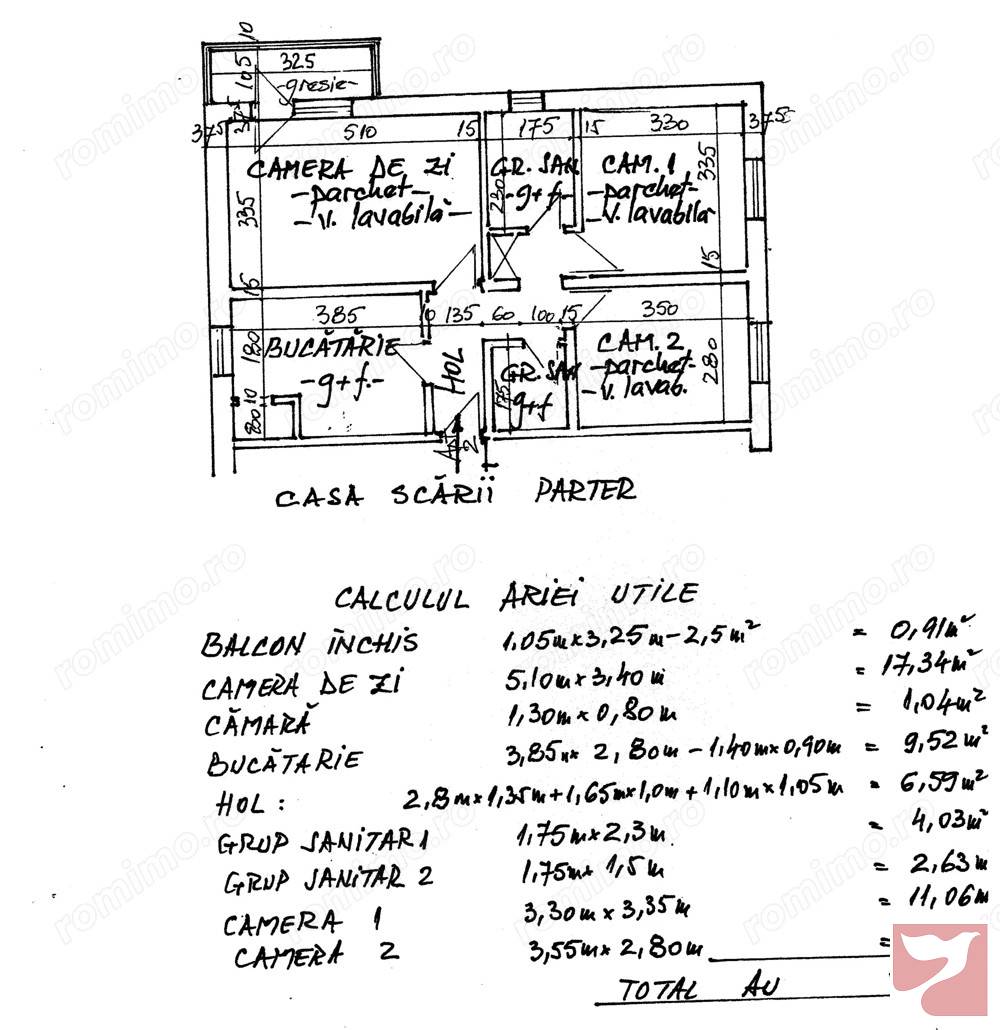 10
325
105
-gresie-
375
375
510
15
175
15
330
375
CAMERA DE ZI
-parchet-
-V. lavabilă-
335
GR. SAN
-g+f.-
230
CAM. 1
-parchet-
-V. lavabilă
335
15
15
385
10
135
60
100
15
350
BUCĂTĂRIE
-g+f.-
180
10
80
HOL
GR. SAN
g+f
175
CAM. 2
-parchet-
-V. lavab.
280
2
CASA SCĂRII PARTER
CALCULUL ARIEI UTILE
BALCON ÎNCHIS 1,05m×3,25m-2,5m² = 0,91m²
CAMERA DE ZI 5,10m×3,40m = 17,34m²
CĂMARĂ 1,30m×0,80m = 1,04m²
BUCĂTARIE 3,85m× 2,80m-1,40m×0,90m = 9,52m²
HOL: 2,8m×1,35m+1,65m×1,0m+1,10m×1,05m = 6,59m²
GRUP SANITAR 1 1,75m×2,3m = 4,03m²
GRUP SANITAR 2 1,75m× 1,5m = 2,63m
CAMERA 1 3,30m × 3,35m = 11,06m
CAMERA 2 3,55m× 2,80m =
TOTAL AU
romimo.ro